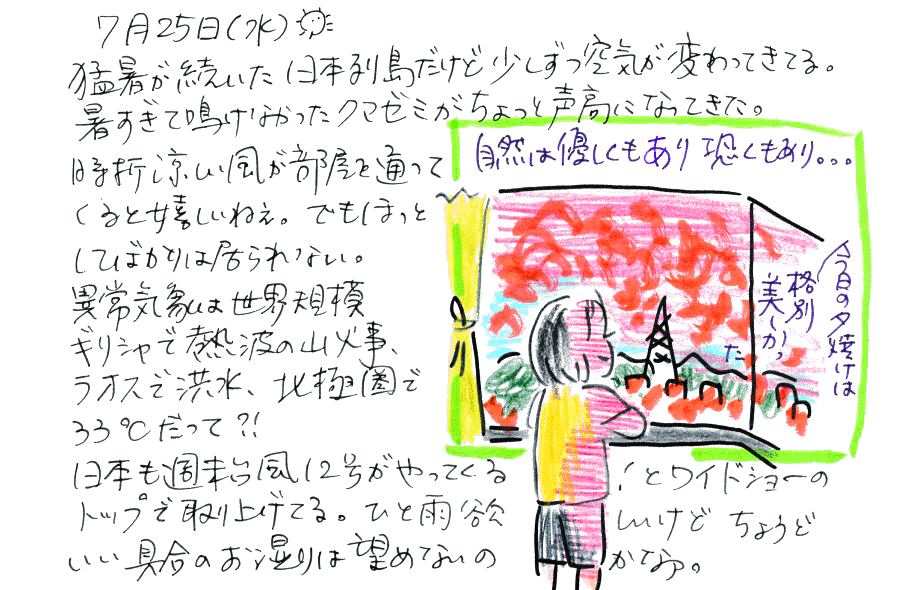 7月25日(水)
猛暑が続いた日本列島だけど少しずつ空気が変わってきてる。
暑すぎて鳴けなかったクマゼミがちょっと声高になってきた。
時折涼しい風が部屋を通って
くると嬉しいねぇ。でもほっと
してばかりは居られない。
異常気象は世界規模
ギリシャで熱波の山火事、
ラオスで洪水、北極圏で
33℃だって?!
日本も週末台風12号がやってくる!とワイドショーの
トップで取り上げてる。ひと雨欲しいけど ちょうど
いい具合のお湿りは望めないのかなぁ。
自然は優しくもあり 恐くもあり...
今日の夕焼けは
格別
美しかっ
た